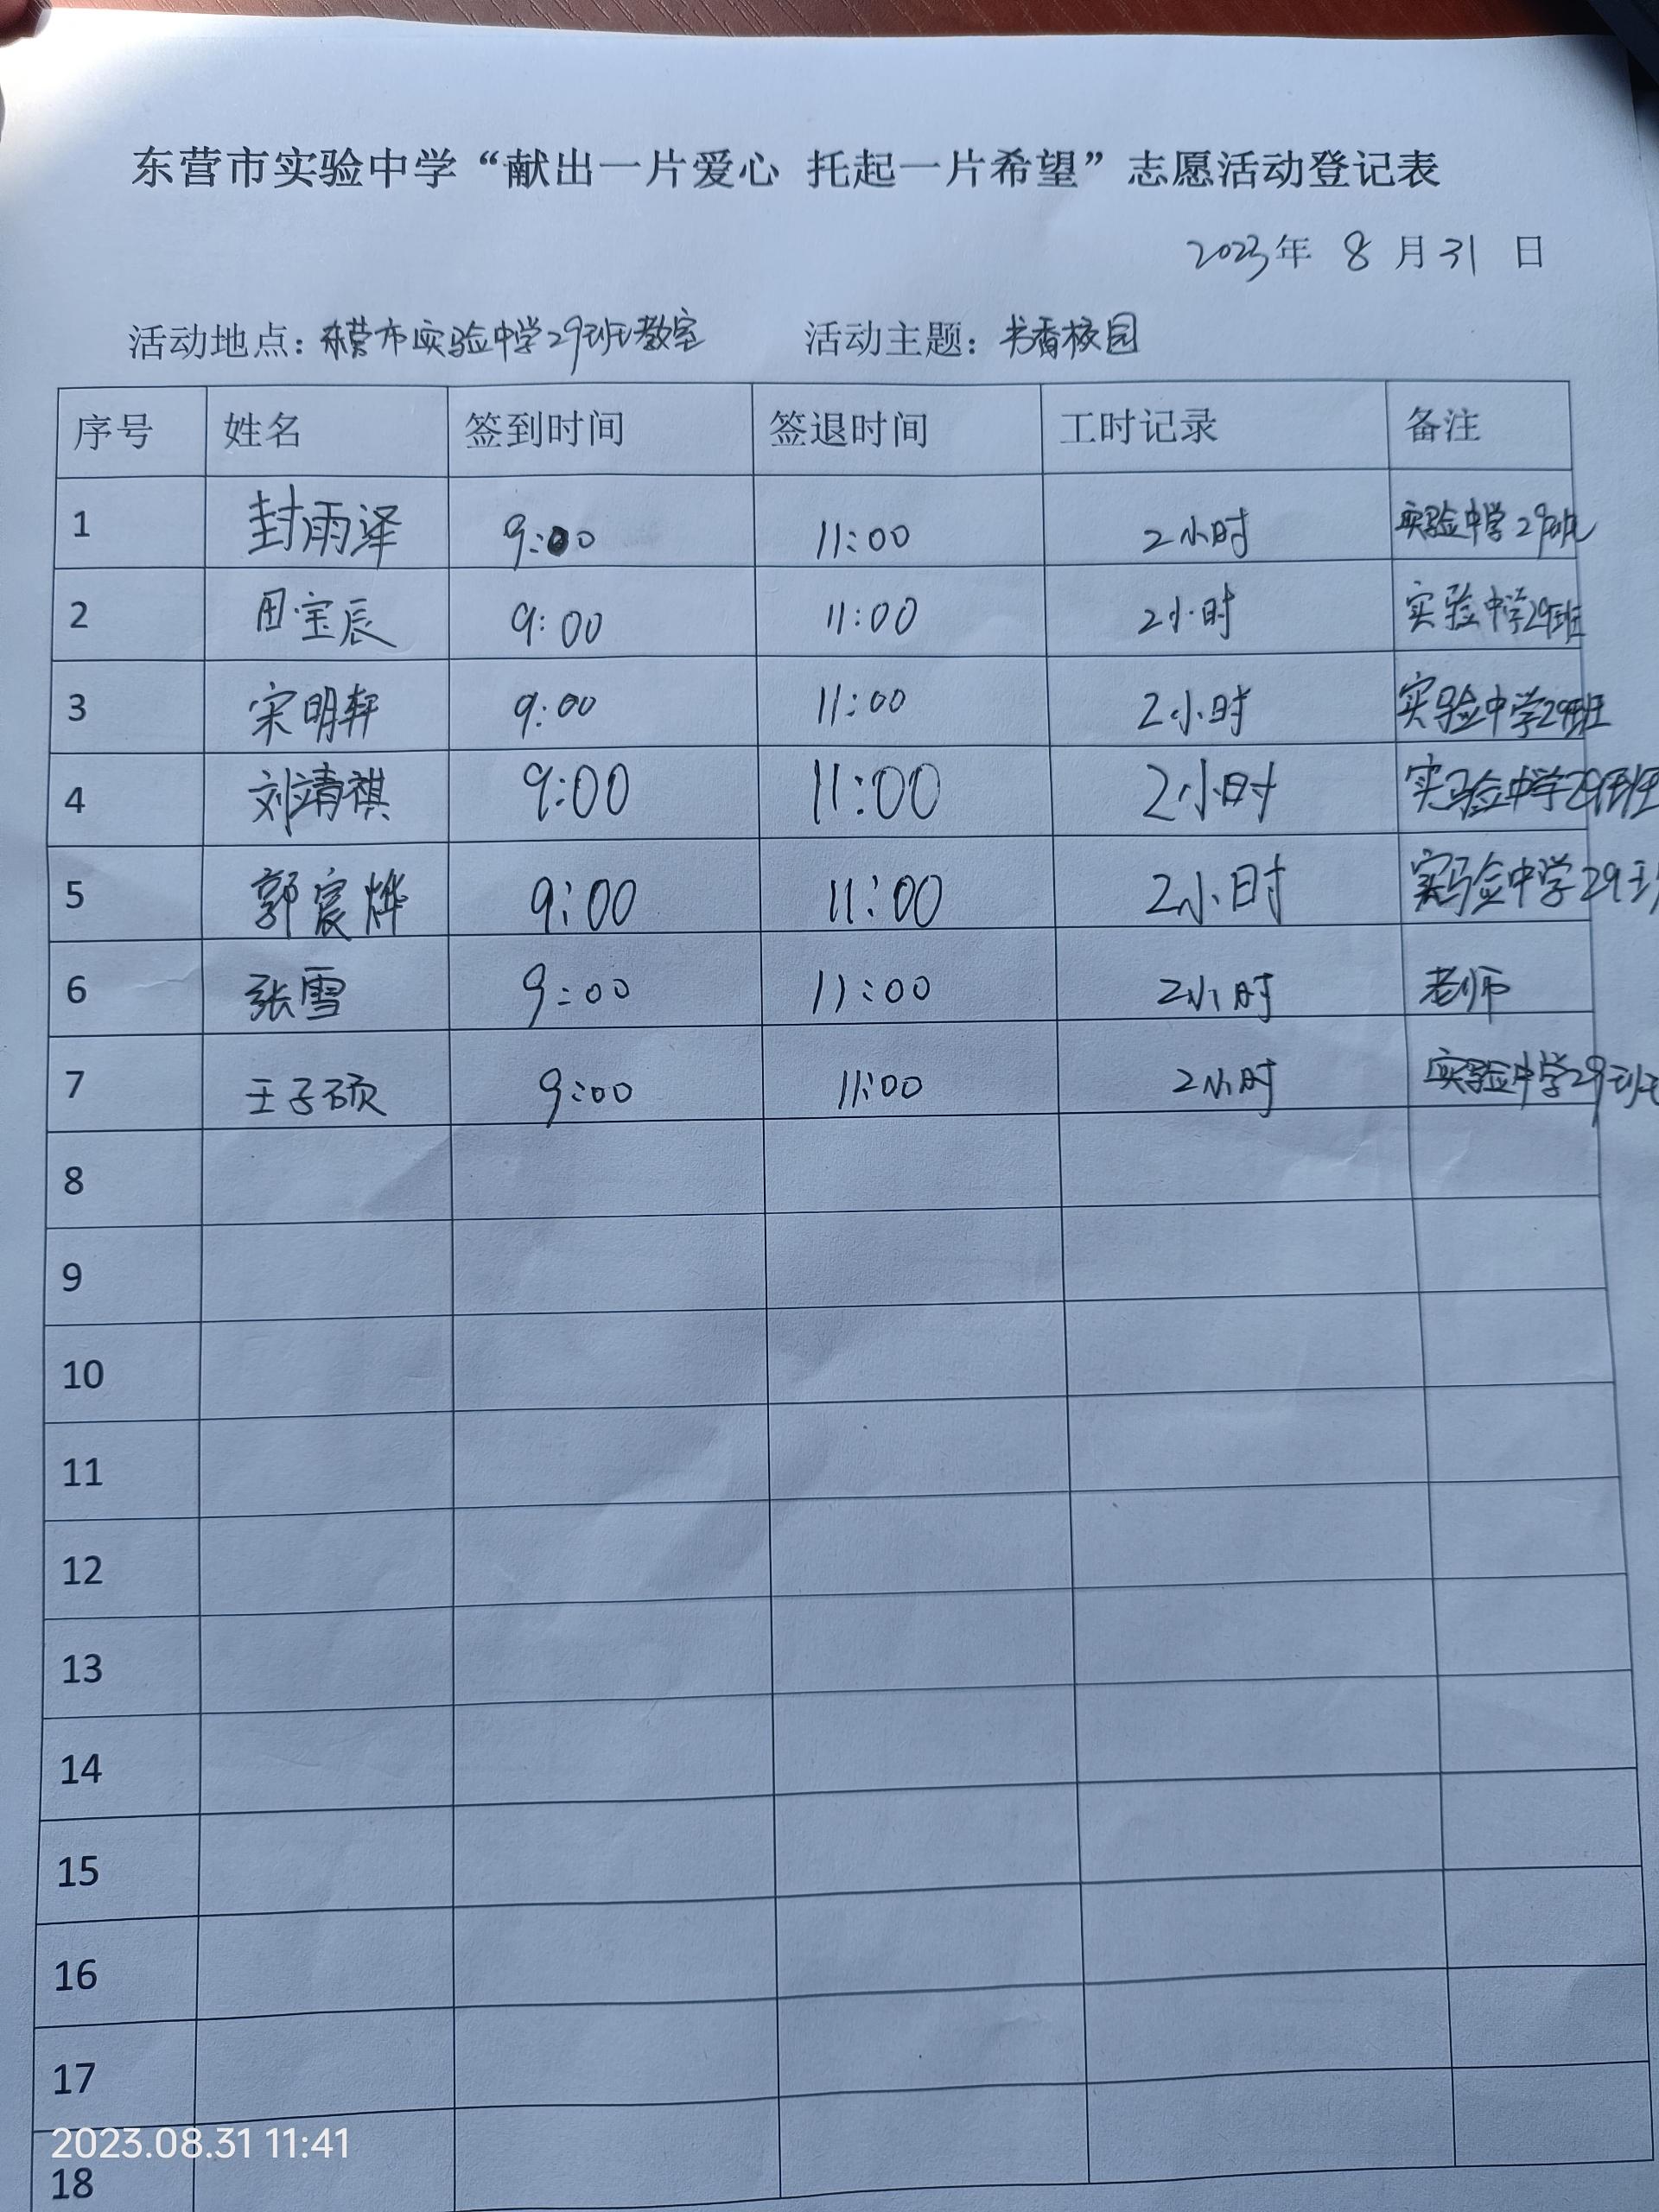 东营市实验中学“献出一片爱心 托起一片希望”志愿活动登记表
2023年 8 月 31 日
活动地点：东营市实验中学29班教室 活动主题：书香校园
序号 姓名 签到时间 签退时间 工时记录 备注
1 封雨泽 9:00 11:00 2小时 实验中学29班
2 田宝辰 9:00 11:00 2小时 实验中学29班
3 宋明轩 9:00 11:00 2小时 实验中学29班
4 刘靖祺 9:00 11:00 2小时 实验中学29班
5 郭宸烨 9:00 11:00 2小时 实验中学29班
6 张雪 9:00 11:00 2小时 老师
7 王子硕 9:00 11:00 2小时 实验中学29班
8
9
10
11
12
13
14
15
16
17
2023.08.31 11:41
18